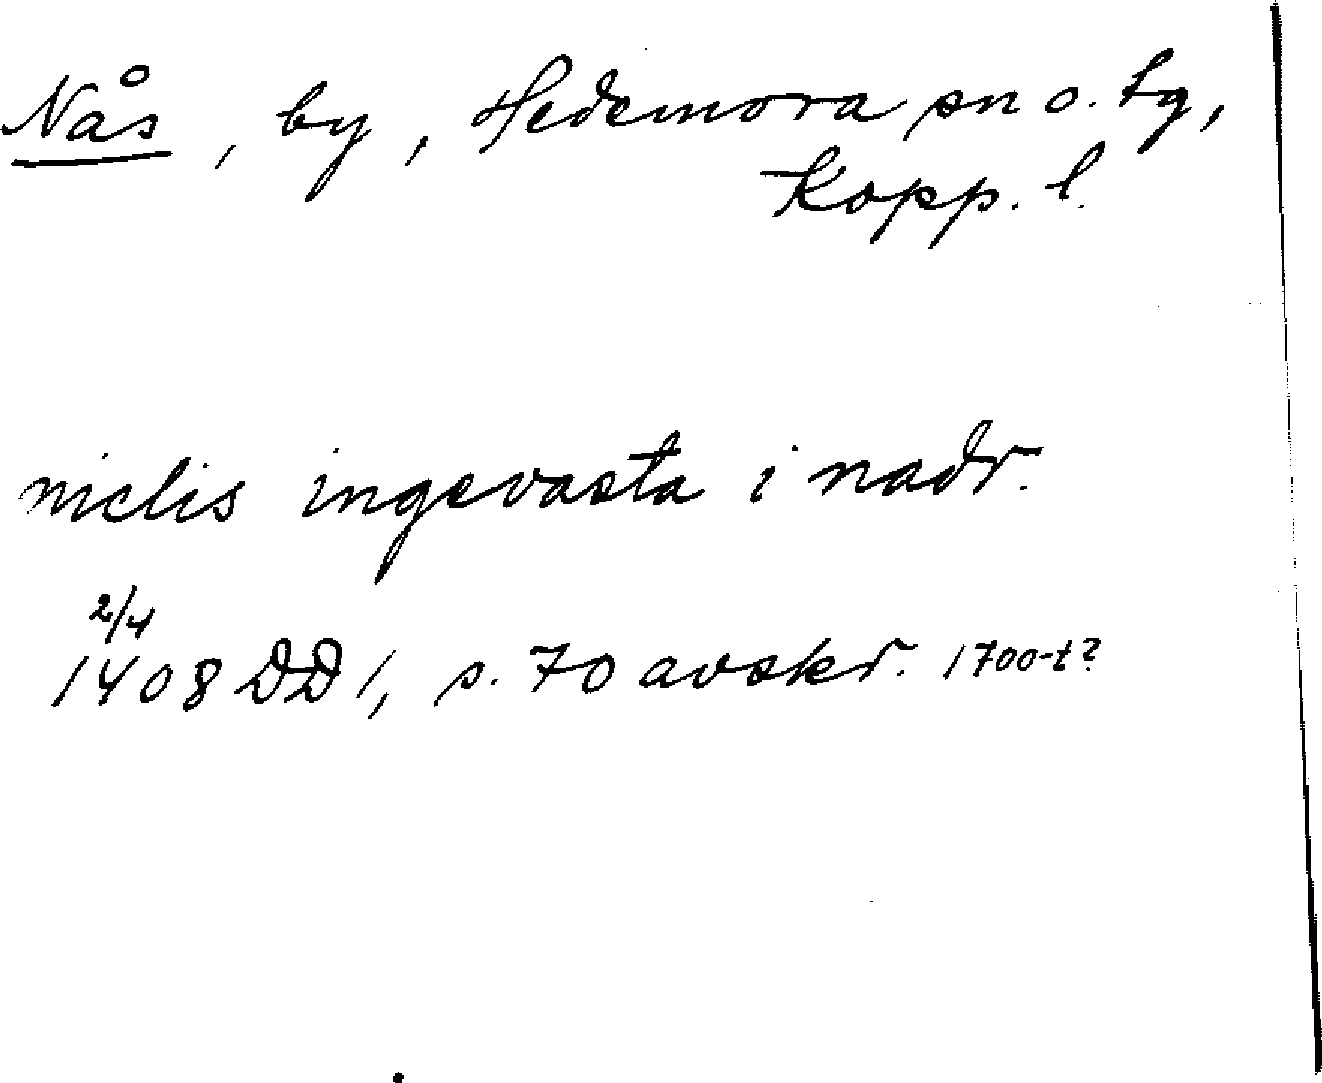 Nås, by, Hedemora sn o. tg,
Kopp. l.
niclis ingevasta i nadr.
2/4
1408 DD 1, s. 70 avskr. 1700-t?